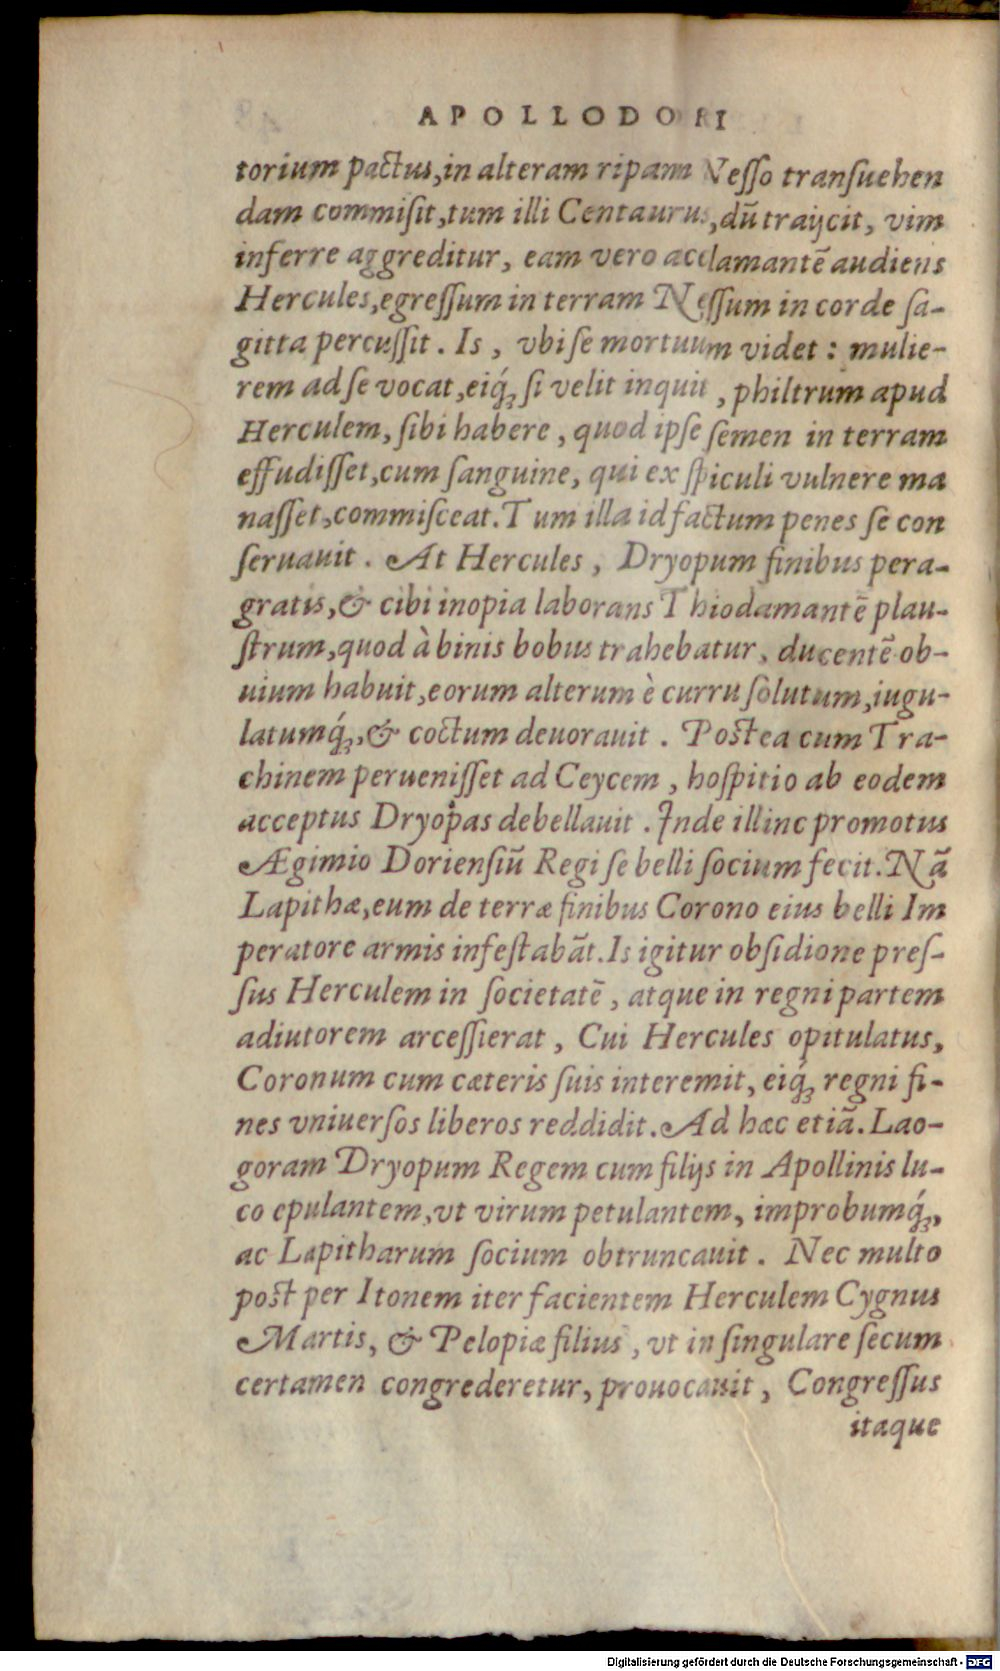 APOLLODORI
torium pactus, in alteram ripam Nesso transuehen
dam commisit, tum illi Centaurus, dū traijcit, vim
inferre aggreditur, eam vero acclamantē audiens
Hercules, egressum in terram Nessum in corde sa-
gitta percussit. Is, vbi se mortuum videt: mulie-
rem ad se vocat, eiq́; si velit inquit, philtrum apud
Herculem, sibi habere, quod ipse semen in terram
effudisset, cum sanguine, qui ex spiculi vulnere ma
nasset, commisceat. Tum illa id factum penes se con
seruauit. At Hercules, Dryopum finibus pera-
gratis, & cibi inopia laborans Thiodamantē plau-
strum, quod à binis bobus trahebatur, ducentē ob-
uium habuit, eorum alterum è curru solutum, iugu-
latumq́;, & coctum deuorauit. Postea cum Tra-
chinem peruenisset ad Ceycem, hospitio ab eodem
acceptus Dryopas debellauit. Inde illinc promotus
Ægimio Doriensiū Regi se belli socium fecit. Nā
Lapithæ, eum de terræ finibus Corono eius belli Im
peratore armis infestabāt. Is igitur obsidione pres-
sus Herculem in societatē, atque in regni partem
adiutorem arcessierat, Cui Hercules opitulatus,
Coronum cum cæteris suis interemit, eiq́; regni fi-
nes vniuersos liberos reddidit. Ad hæc etiā. Lao-
goram Dryopum Regem cum filijs in Apollinis lu-
co epulantem, vt virum petulantem, improbumq́;,
ac Lapitharum socium obtruncauit. Nec multo
post per Itonem iter facientem Herculem Cygnus
Martis, & Pelopiæ filius, vt in singulare secum
certamen congrederetur, prouocauit, Congressus
itaque
Digitalisierung gefördert durch die Deutsche Forschungsgemeinschaft - DFG